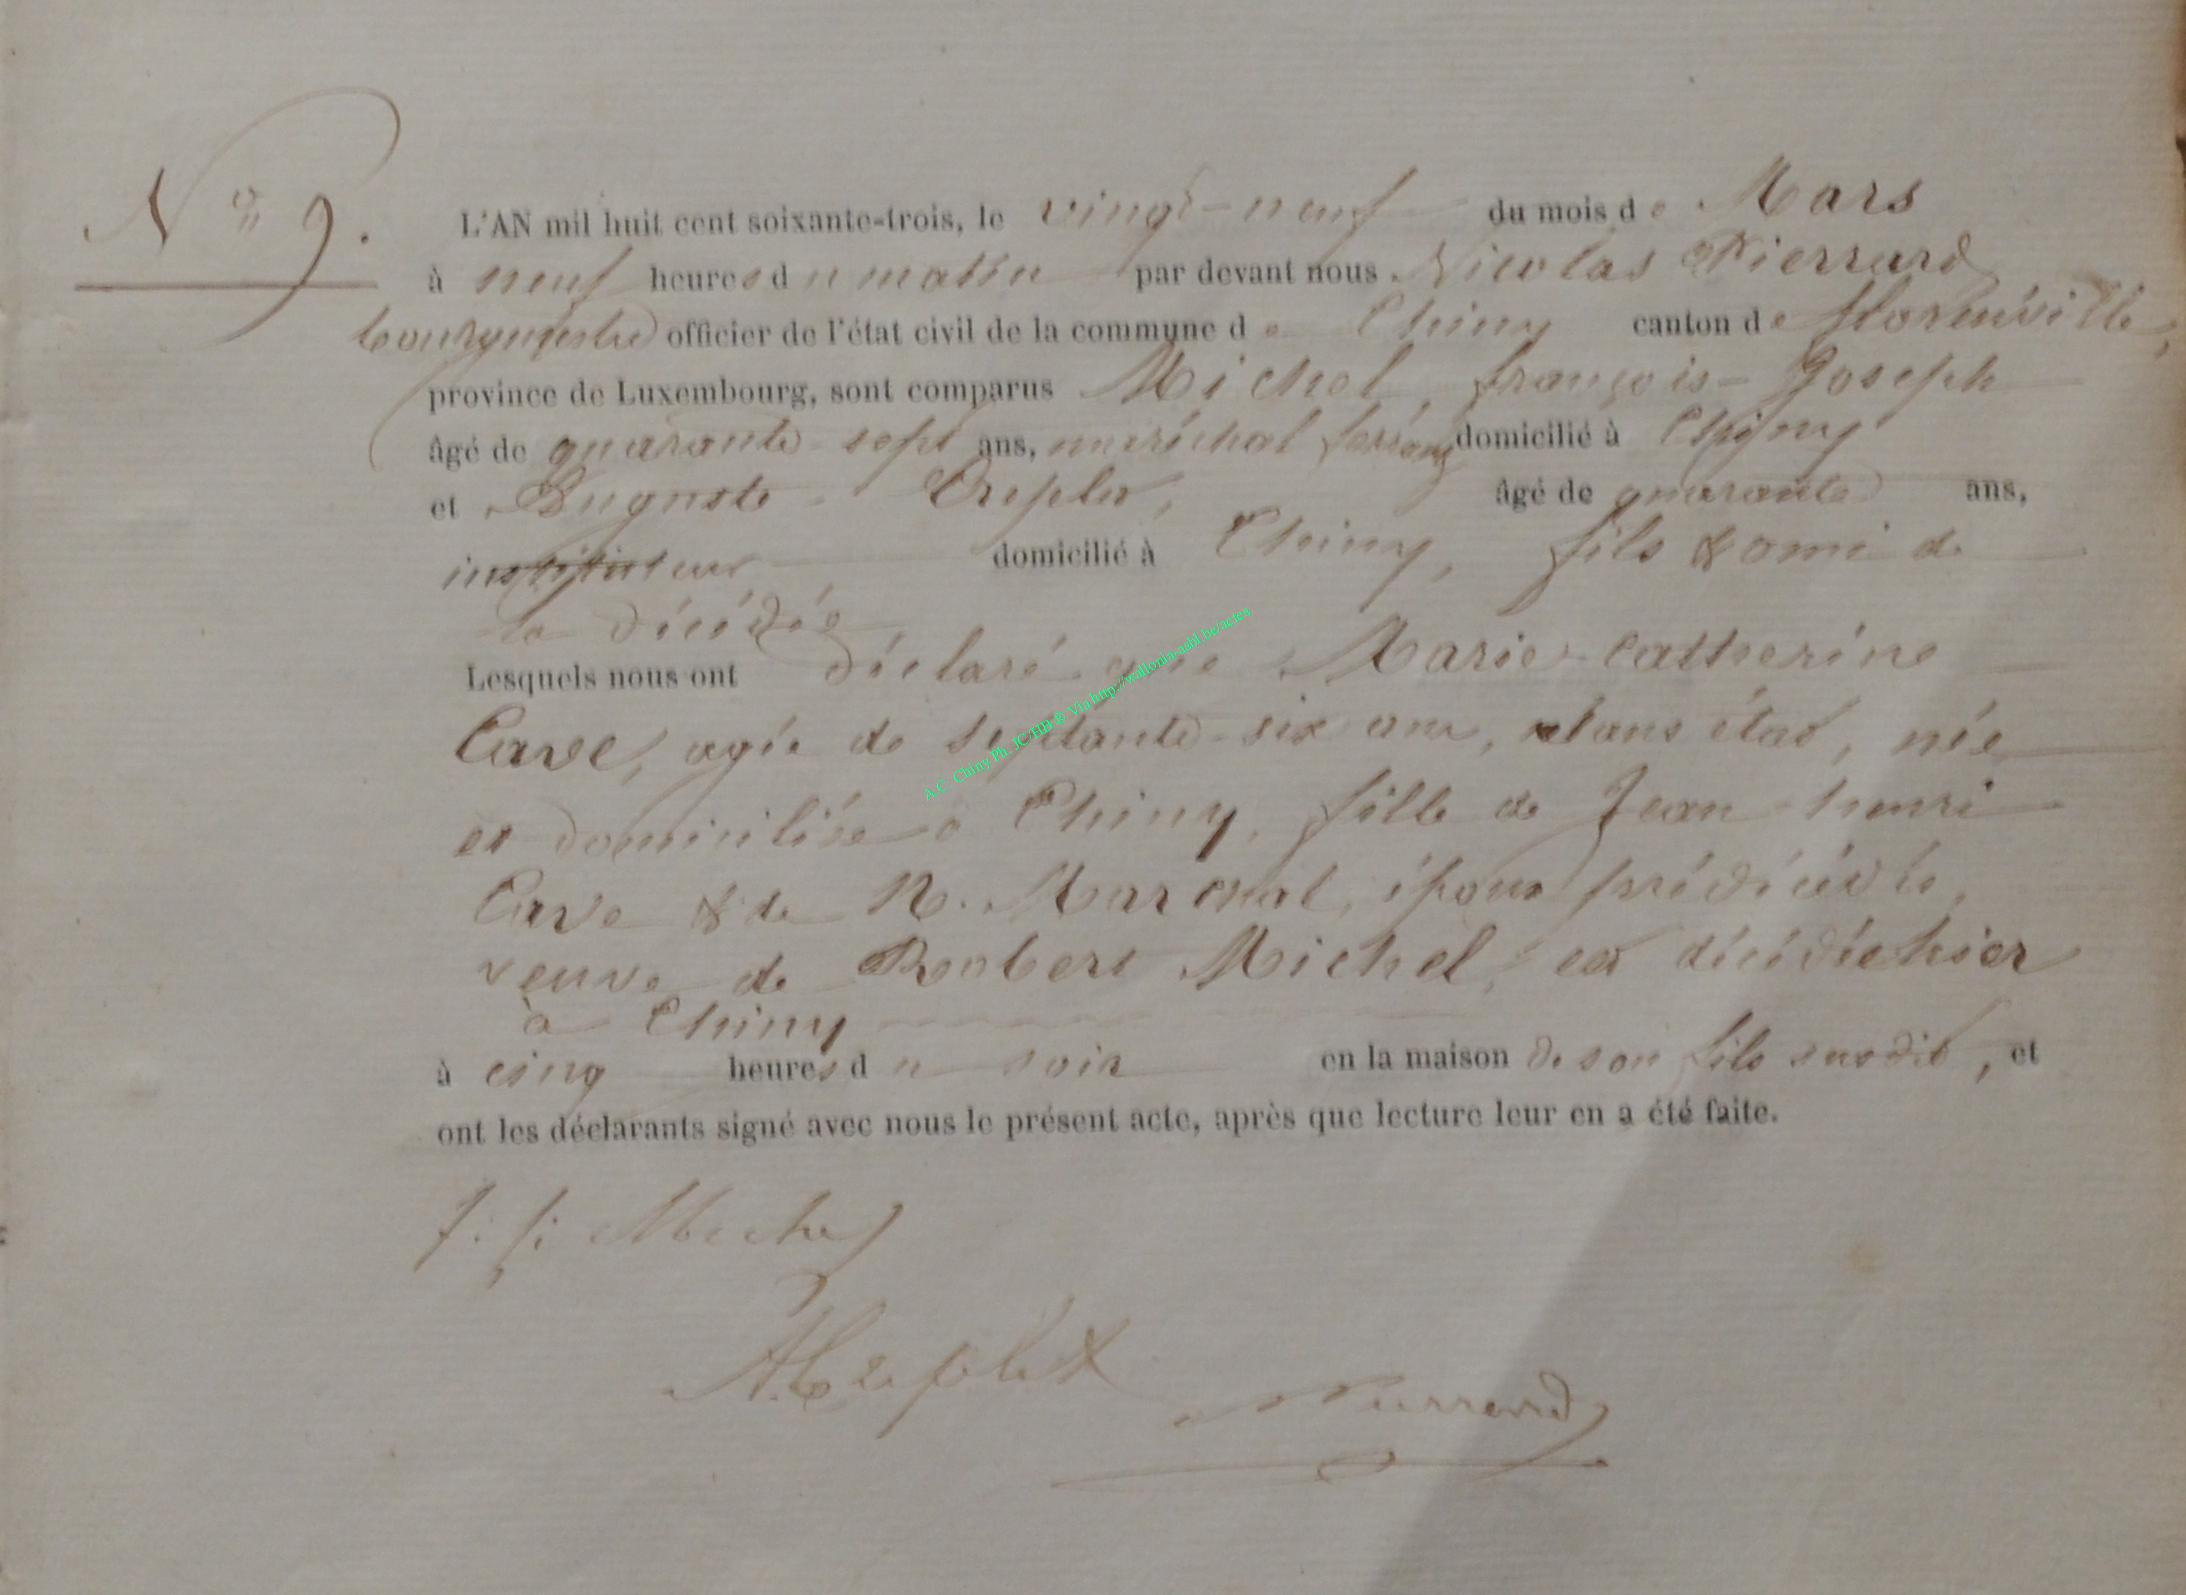 N° 9.
L'AN mil huit cent soixante-trois, le vingt-neuf du mois de Mars
à neuf heures du matin par devant nous Nicolas Pierrard
bourgmestre officier de l'état civil de la commune de Chiny canton de florenville,
province de Luxembourg, sont comparus Michel, françois-Joseph
âgé de quarante-sept ans, maréchal ferrant domicilié à Chiny
et Auguste Creplet, âgé de quarante ans,
instituteur domicilié à Chiny, fils & ami de
la décédée
Lesquels nous ont déclaré que Marie-Catherine
Cave, agée de septante-six ans, sans état, née
et domiciliée à Chiny, fille de Jean henri
Cave & de N. Marchal, époux prédécédés,
veuve de Robert Michel, est décédée hier
à Chiny
à cinq heures du soir en la maison de son fils susdit, et
ont les déclarants signé avec nous le présent acte, après que lecture leur en a été faite.
f. j. Michel
A. Creplet
Pierrard
A.C. Chiny Ph. JC/HB & Via http://wallonia-asbl.be/actes